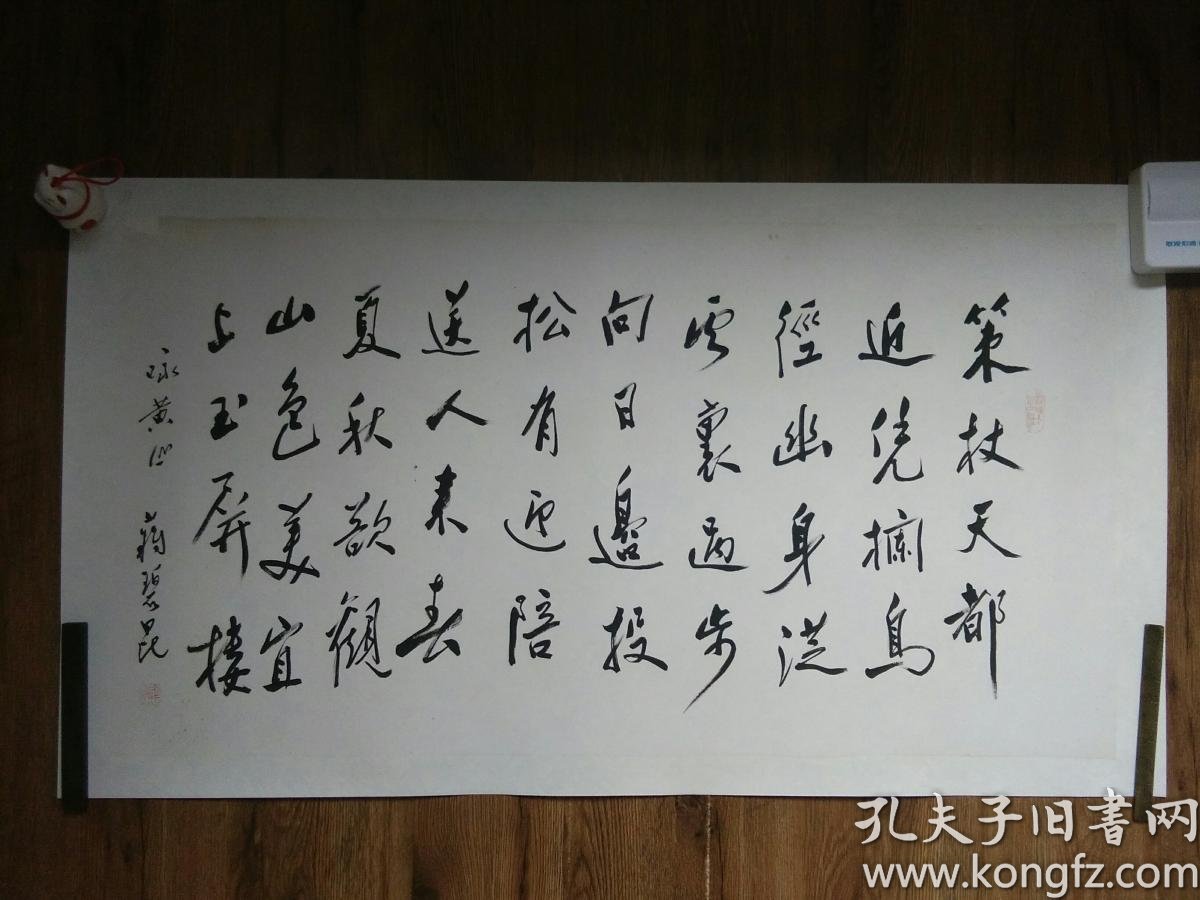 策杖天都
近凭摛鳥
徑幽身從
雲裏過步
向日邊投
松有迎陪
送人来春
夏秋歆觀
山色美宜
上玉屏樓
詠黄山 蔣碧昆
孔夫子旧书网
www.kongfz.com